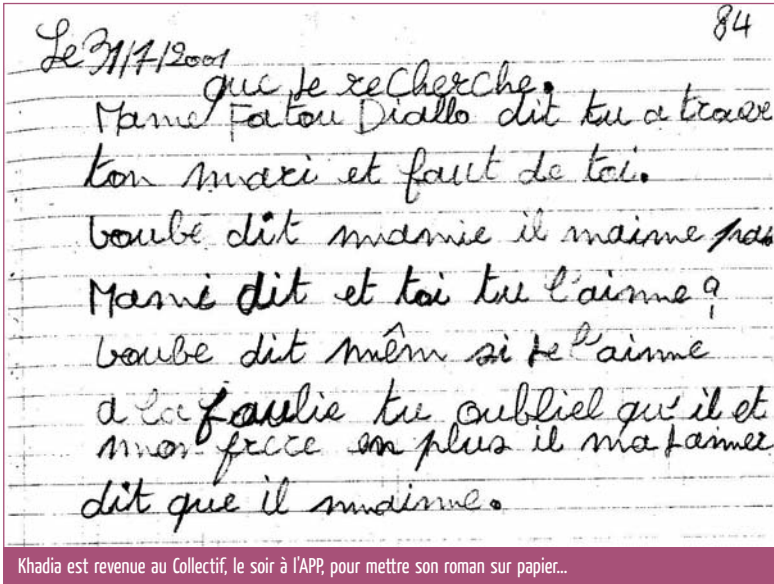 84
Le 31/7/2001
que je recherche.
Mame Fatou Diallo dit tu a trouve
ton mari et faut de toi.
boube dit mamie il maime pas
Mami dit et toi tu l'aimme ?
boube dit mêm si je l'aimme
a la foulie tu oubliel qu'il et
mon frere en plus il ma jamer
dit que il maime.
Khadia est revenue au Collectif, le soir à l'APP, pour mettre son roman sur papier...